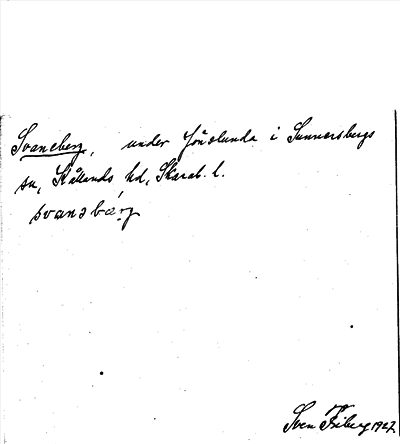 Svaneberg, under Jönslunda i Sunnersbergs
sn, Kållands hd, Skarab. l.
svanəbærj
Sven Friberg 1927.